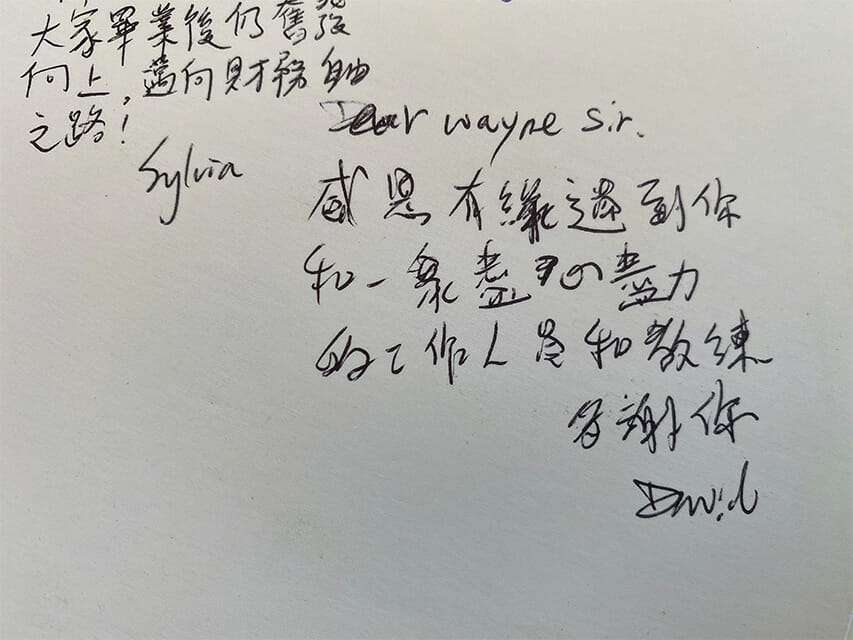 大家畢業後仍奮發
向上，邁向財務自由
之路！
Sylvia
Dear wayne sir.
感恩有緣遇到你
和一眾盡心盡力
的工作人員和教練
多謝你
David